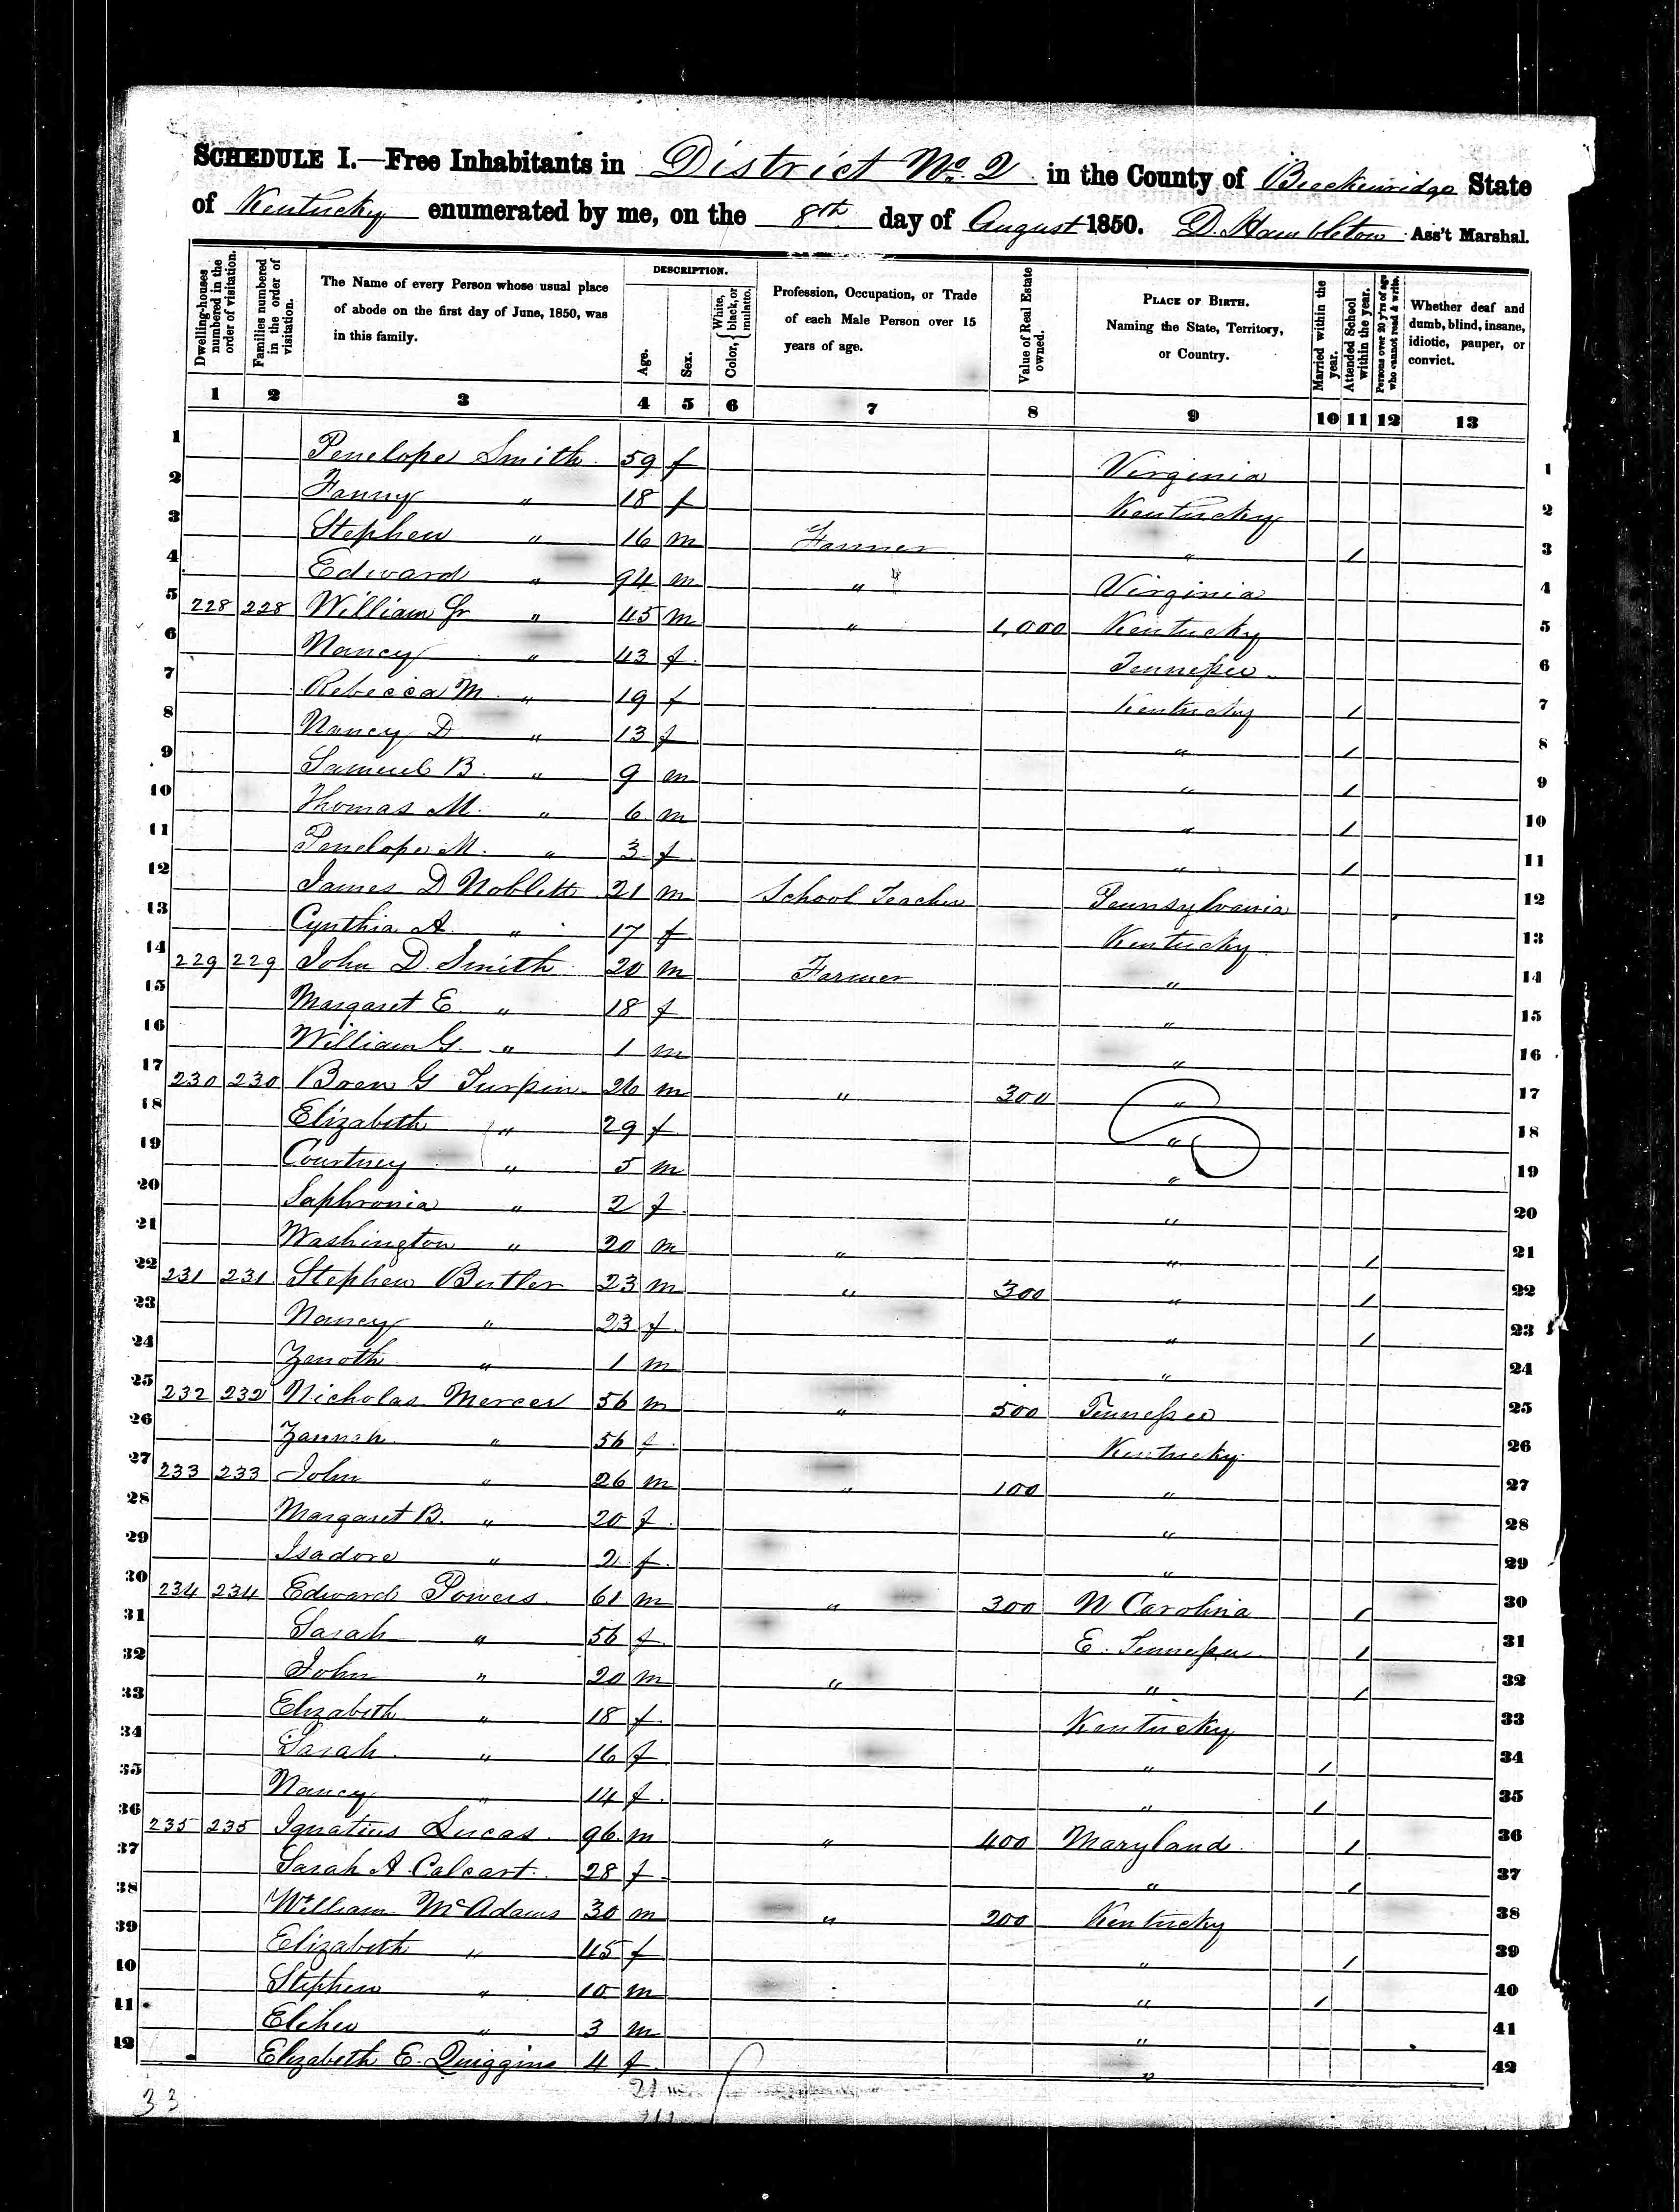 SCHEDULE I.—Free Inhabitants in District No. 2 in the County of Breckenridge State
of Kentucky enumerated by me, on the 8th day of August 1850. D. Hambleton Ass't Marshal.
Dwelling-houses numbered in the order of visitation.
Families numbered in the order of visitation.
The Name of every Person whose usual place of abode on the first day of June, 1850, was in this family.
DESCRIPTION.
Age.
Sex.
Color, { White, black, or mulatto.
Profession, Occupation, or Trade of each Male Person over 15 years of age.
Value of Real Estate owned.
PLACE OF BIRTH. Naming the State, Territory, or Country.
Married within the year.
Attended School within the year.
Persons over 20 y'rs of age who cannot read & write.
Whether deaf and dumb, blind, insane, idiotic, pauper, or convict.
1 2 3 4 5 6 7 8 9 10 11 12 13
1 Penelope Smith 59 f Virginia 1
2 Fanny " 18 f Kentucky 2
3 Stephen " 16 m Farmer " / 3
4 Edward " 94 m " Virginia 4
5 228 228 William Jr " 45 m " 1,000 Kentucky 5
6 Nancy " 43 f Tennessee 6
7 Rebecca M. " 19 f Kentucky / 7
8 Nancy D " 13 f " / 8
9 Samuel B. " 9 m " / 9
10 Thomas M. " 6 m " / 10
11 Penelope M. " 3 f " / 11
12 James D Noblett 21 m School Teacher Pennsylvania 12
13 Cynthia A. " 17 f Kentucky 13
14 229 229 John D. Smith 20 m Farmer " 14
15 Margaret E " 18 f " 15
16 William G. " 1 m " 16
17 230 230 Boen G Turpin 26 m " 300 " 17
18 Elizabeth " 29 f " 18
19 Courtney " 5 m " 19
20 Saphronia " 2 f " 20
21 Washington " 20 m " " / 21
22 231 231 Stephen Butler 23 m " 300 " / 22
23 Nancy " 23 f " / 23
24 Zenoth " 1 m " 24
25 232 232 Nicholas Mercer 56 m " 500 Tennessee 25
26 " 56 f Kentucky 26
27 233 233 John " 26 m " 100 " 27
28 Margaret B. " 20 f " 28
29 Isadore " 2 f " 29
30 234 234 Edward Powers 61 m " 300 N Carolina / 30
31 Sarah " 56 f E. Tennessee / 31
32 John " 20 m " " / 32
33 Elizabeth " 18 f Kentucky 33
34 Sarah " 16 f " / 34
35 Nancy " 14 f " / 35
36 235 235 Ignatius Lucas 96 m " 400 Maryland / 36
37 Sarah A Calcart 28 f " / 37
38 William McAdams 30 m " 200 Kentucky 38
39 Elizabeth " 45 f " / 39
40 Stephen " 10 m " / 40
41 Elihu " 3 m " 41
42 Elizabeth E. Quiggins 4 f " 42
33
21 m